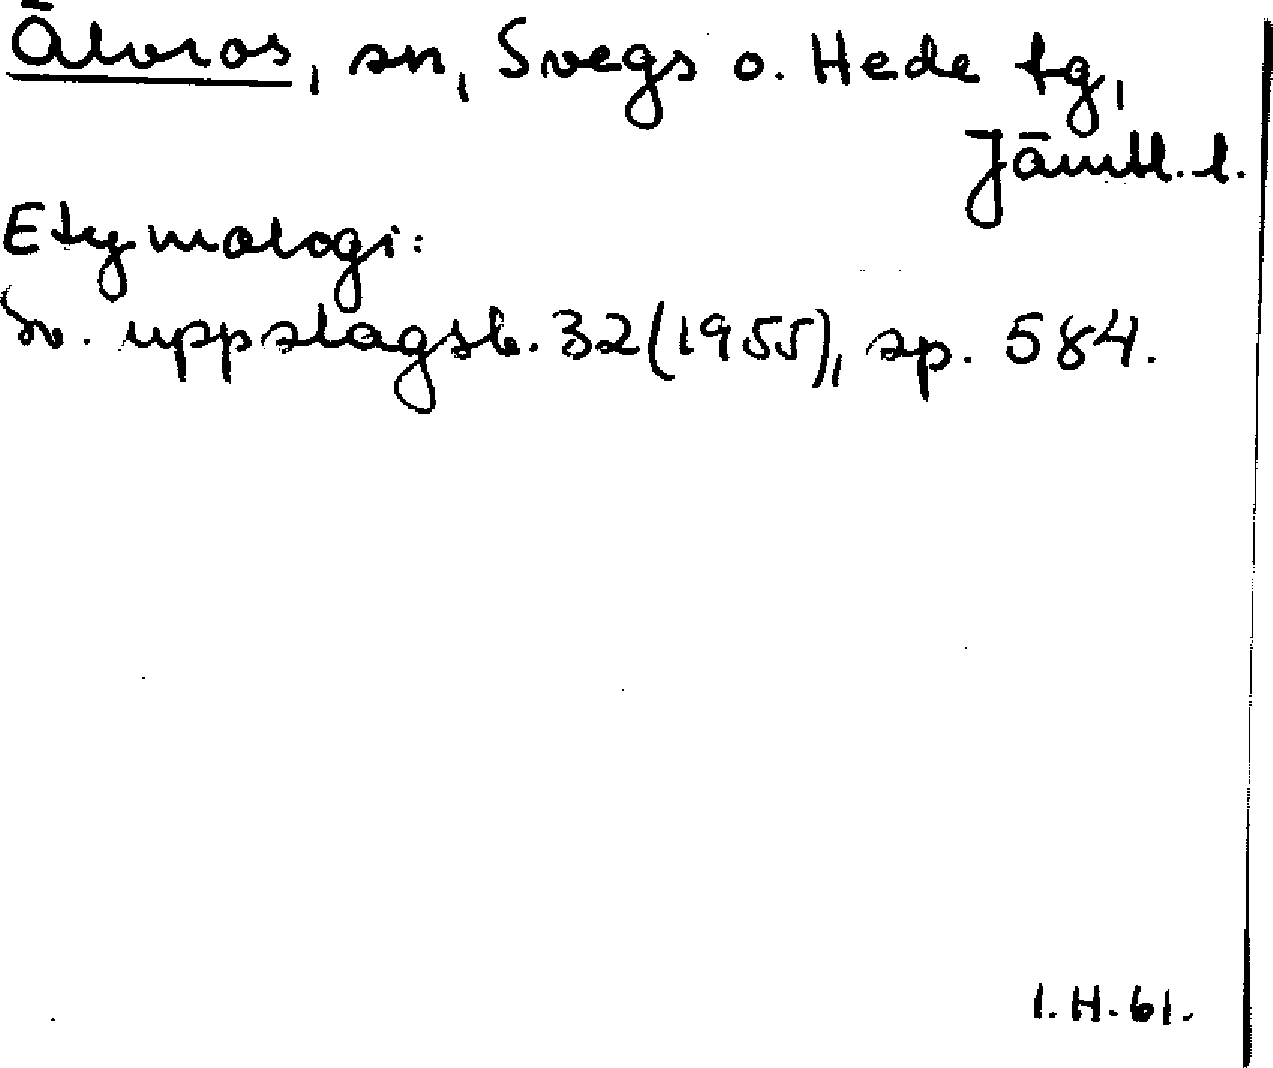 Älvros, sn, Svegs o. Hede tg,
Jämtl. l.
Etymologi:
Sv. uppslagsb. 32 (1955), sp. 584.
I. H. 61.